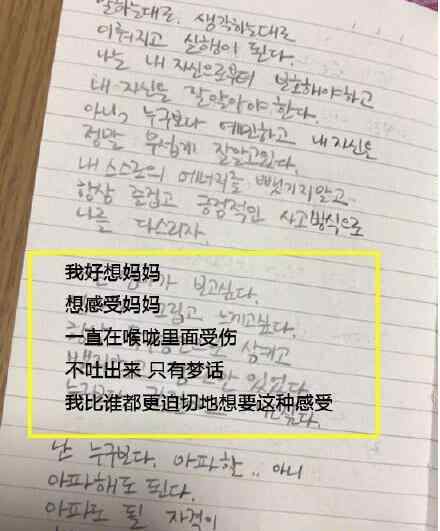 말하는대로. 생각하는대로
이뤄지고 실행이 된다.
나는 내 자신으로부터 보호해야하고
내 자신을 잘 알아야 한다.
아니, 누구보다 예민하고 내 자신은
정말 무섭게 잘알고있다.
내 스스로의 에너지를 뺏기지말고
항상 즐겁고 긍정적인 사고방식으로
나를 다스리자.
가 보고싶다.
我好想妈妈
그립고 느끼고싶다.
想感受妈妈
삼키고
一直在喉咙里面受伤
있었다
不吐出来 只有梦话
我比谁都更迫切地想要这种感受
난 누구보다. 아파한.. 아니
아파해도 된다.
아파도 될 자격이